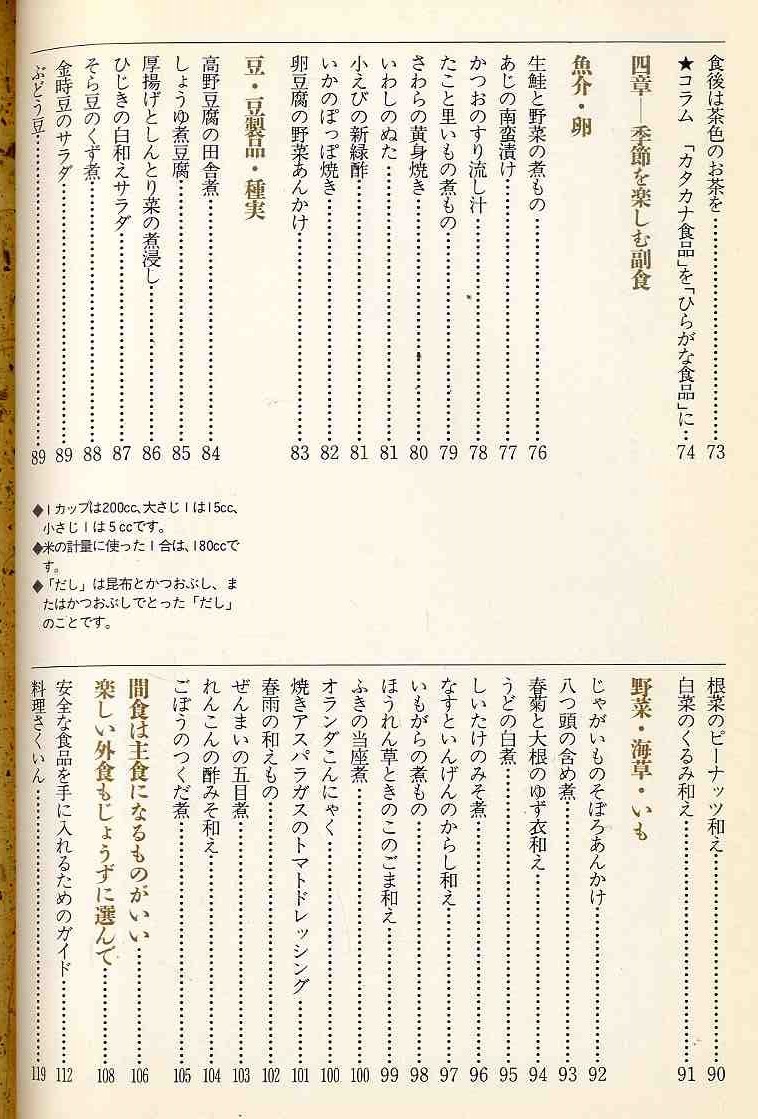 食後は茶色のお茶を……………73
★コラム 「カタカナ食品」を「ひらがな食品」に…74
四章―季節を楽しむ副食
魚介・卵
生鮭と野菜の煮もの……………76
あじの南蛮漬け……………77
かつおのすり流し汁……………78
たこと里いもの煮もの……………79
さわらの黄身焼き……………80
いわしのぬた……………81
小えびの新緑酢……………81
いかのぽっぽ焼き……………82
卵豆腐の野菜あんかけ……………83
豆・豆製品・種実
高野豆腐の田舎煮……………84
しょうゆ煮豆腐……………85
厚揚げとしんとり菜の煮浸し……………86
ひじきの白和えサラダ……………87
そら豆のくず煮……………88
金時豆のサラダ……………89
ぶどう豆……………89
◆1カップは200cc、大さじ1は15cc、
小さじ1は5ccです。
◆米の計量に使った1合は、180ccで
す。
◆「だし」は昆布とかつおぶし、ま
たはかつおぶしでとった「だし」
のことです。
根菜のピーナッツ和え……………90
白菜のくるみ和え……………91
野菜・海草・いも
じゃがいものそぼろあんかけ……………92
八つ頭の含め煮……………93
春菊と大根のゆず衣和え……………94
うどの白煮……………95
しいたけのみそ煮……………96
なすといんげんのからし和え……………97
いもがらの煮もの……………98
ほうれん草ときのこのごま和え……………99
ふきの当座煮……………100
オランダこんにゃく……………100
焼きアスパラガスのトマトドレッシング……………101
春雨の和えもの……………102
ぜんまいの五目煮……………103
れんこんの酢みそ和え……………104
ごぼうのつくだ煮……………105
間食は主食になるものがいい……………106
楽しい外食もじょうずに選んで……………108
安全な食品を手に入れるためのガイド……………112
料理さくいん……………119